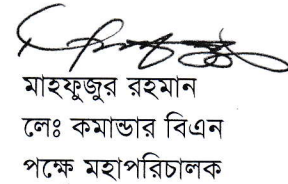 মাহফুজুর রহমান
লেঃ কমান্ডার বিএন
পক্ষে মহাপরিচালক